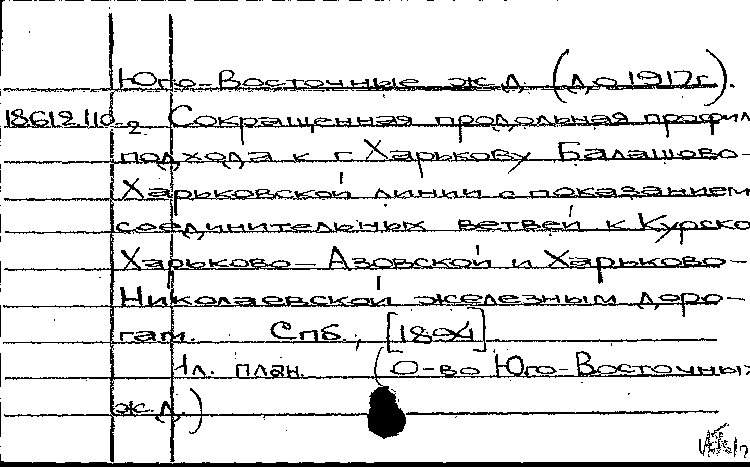 Юго-Восточные ж.д. (до 1917г.).
18612.110.2 Сокращенная продольная профил
подхода к г. Харькову Балашово-
Харьковской линии с показанием
соединительных ветвей к Курско
Харьково-Азовской и Харьково-
Николаевской железным доро-
гам. Спб., [1894]
1л. план. (О-во Юго-Восточных
ж.д.)